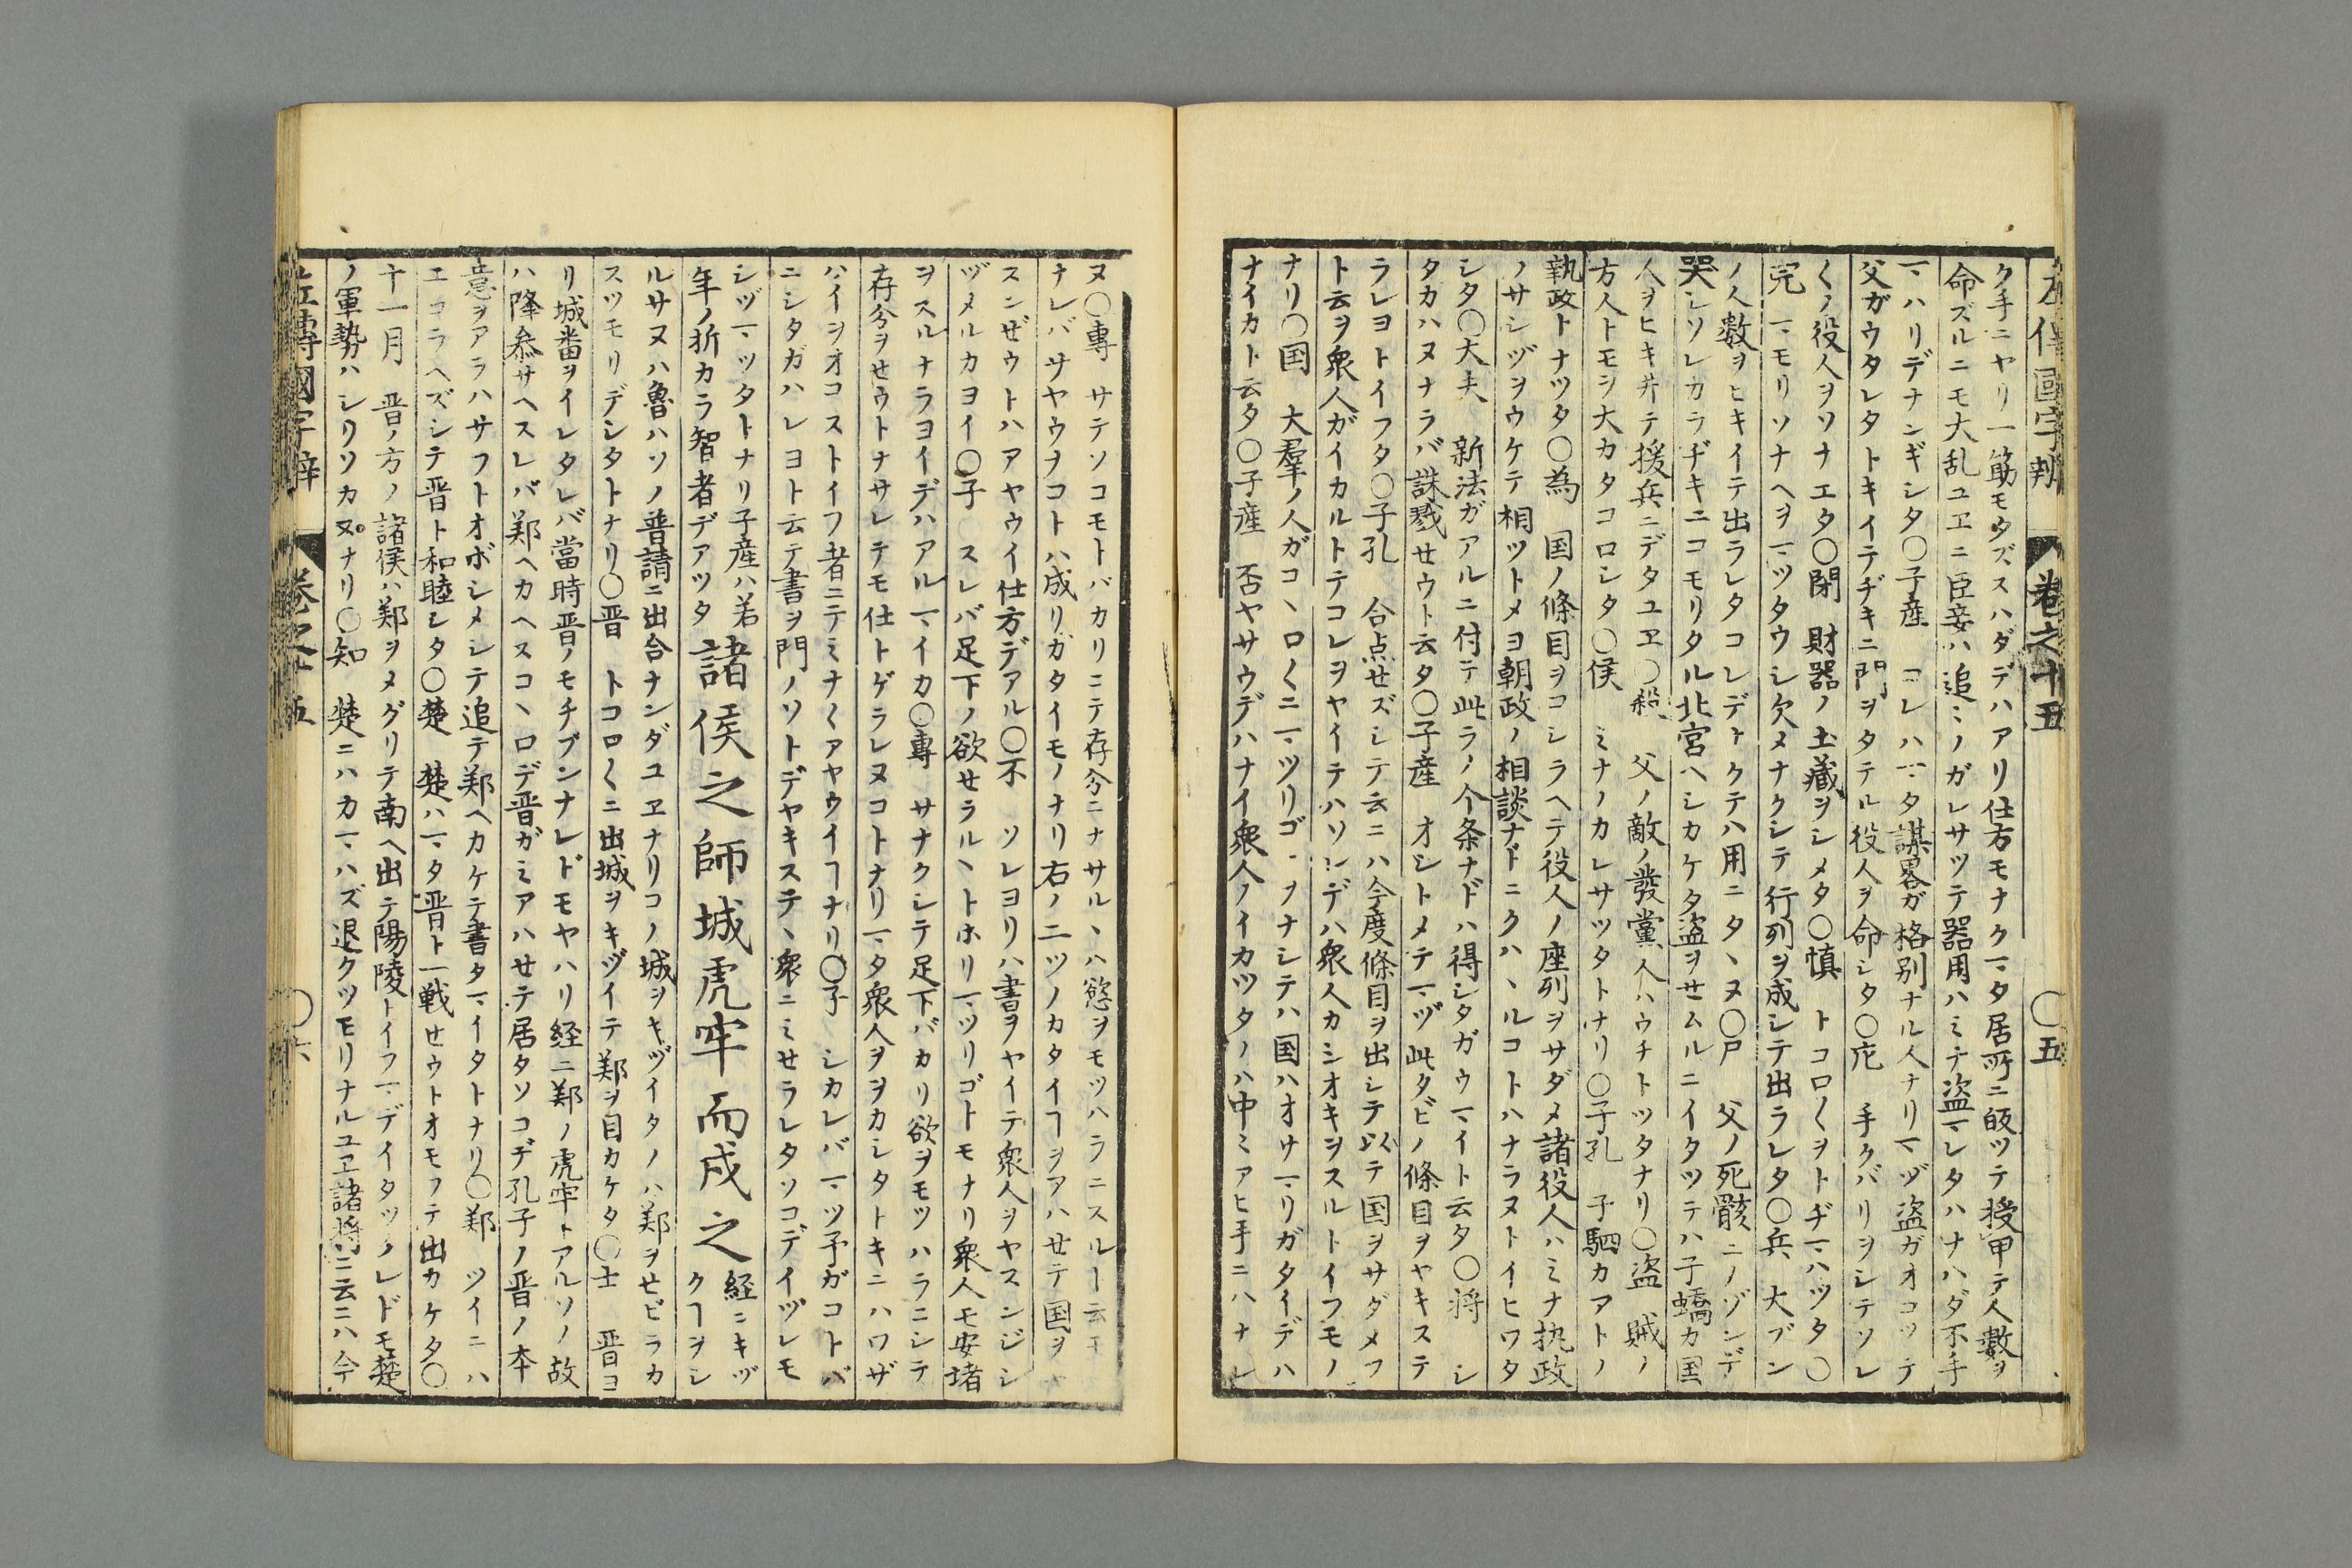 左傳國字辨 巻之十五 〇五
ク手ニヤリ一筋モタズスハダデハアリ仕方モナクマタ居所ニ皈ツテ授甲テ人數ヲ
命ズルニモ大乱ユヱニ臣妾ハ追ミノガレサツテ器用ハミナ盗マレタハナハダ不手
マハリデナンギシタ〇子産 コレハマタ謀畧ガ格別ナル人ナリマヅ盗ガオコツテ
父ガウタレタトキイテヂキニ門ヲタテル役人ヲ命シタ〇庀 手クバリヲシテソレ
〱ノ役人ヲソナエタ〇閉 財器ノ土藏ヲシメタ〇慎 トコロ〱ヲトヂマハツタ〇
完 マモリソナヘヲマツタウシ欠メナクシテ行列ヲ成シテ出ラレタ〇兵 大ブン
ノ人數ヲヒキイテ出ラレタコレデナクテハ用ニタヽヌ〇尸 父ノ死骸ニノゾンデ
哭シソレカラヂキニコモリタル北宮ヘシカケタ盗ヲせムルニイタツテハ子蟜カ国
人ヲヒキ井テ援兵ニデタユヱ〇殺 父ノ敵ノ發黨人ハウチトツタナリ〇盗 賊ノ
方人トモヲ大カタコロシタ〇侯 ミナノカレサツタトナリ〇子孔 子駟カアトノ
執政トナツタ〇為 国ノ條目ヲコシラヘテ役人ノ座列ヲサダメ諸役人ハミナ执政
ノサシヅヲウケテ相ツトメヨ朝政ノ相談ナドニクハヽルコトハナラヌトイヒワタ
シタ〇大夫 新法ガアルニ付テ此ラノ个条ナドハ得シタガウマイト云タ〇將 シ
タカハヌナラバ誅戮せウト云タ〇子産 オシトメテマヅ此タビノ條目ヲヤキステ
ラレヨトイフタ〇子孔 合点せズシテ云ニハ今度條目ヲ出シテ以テ国ヲサダメフ
ト云ヲ衆人ガイカルトテコレヲヤイテハソレデハ衆人カシオキヲスルトイフモノ
ナリ〇国 大羣ノ人ガコヽロ〱ニマツリゴヲナシテハ国ハオサマリガタイデハ
ナイカト云タ〇子産 否ヤサウデハナイ衆人ノイカツタノハ中ミアヒ手ニハナレ
ヌ〇專 サテソコモトバカリニテ存分ニナサルヽハ慾ヲモツハラニスルト云モ
ナレバサヤウナコトハ成リガタイモノナリ右ノ二ツノカタイヿヲアハせテ国ヲヤ
スンゼウトハアヤウイ仕方デアル〇不 ソレヨリハ書ヲヤイテ衆人ヲヤスンジシ
ヅメルカヨイ〇子 スレバ足下ノ欲せラルヽトホリマツリゴトモナリ衆人モ安堵
ヲスルナラヨイデハアルマイカ〇專 サナクシテ足下バカリ欲ヲモツハラニシテ
存分ヲせウトナサレテモ仕トゲラレヌコトナリマタ衆人ヲヲカシタトキニハワザ
ハイヲオコストイフ者ニテミナ〱アヤウイヿナリ〇子 シカレバマツ予ガコトバ
ニシタガハレヨト云テ書ヲ門ノソトデヤキステヽ衆ニミせラレタソコデイヅレモ
シヅマツタトナリ子産ハ若
年ノ折カラ智者デアツタ 諸侯之師城虎牢而戍之 経ニキヅ
クヿヲシ
ルサヌハ魯ハソノ普請ニ出合ナンダユヱナリコノ城ヲキヅイタノハ郑ヲせビラカ
スツモリデシタトナリ〇晋 トコロ〱ニ出城ヲキヅイテ郑ヲ目カケタ〇士 晋ヨ
リ城番ヲイレタレバ當時晋ノモチブンナレドモヤハリ経ニ郑ノ虎牢トアルソノ故
ハ降參サヘスレバ郑ヘカヘスコヽロデ晋ガミアハせテ居タソコデ孔子ノ晋ノ本
意ヲアラハサフトオボシメシテ追テ郑ヘカケテ書タマイタトナリ〇郑 ツイニハ
エコラヘズシテ晋ト和睦シタ〇楚 楚ハマタ晋ト一戦せウトオモフテ出カケタ〇
十一月 晋ノ方ノ諸侯ハ郑ヲメグリテ南ヘ出テ陽陵トイフマデイタツタレドモ楚
ノ軍勢ハシリソカヌナリ〇知 楚ニハカマハズ退クツモリナルユヱ諸將ニ云ニハ今
左傳國字辨 巻之十五 〇六